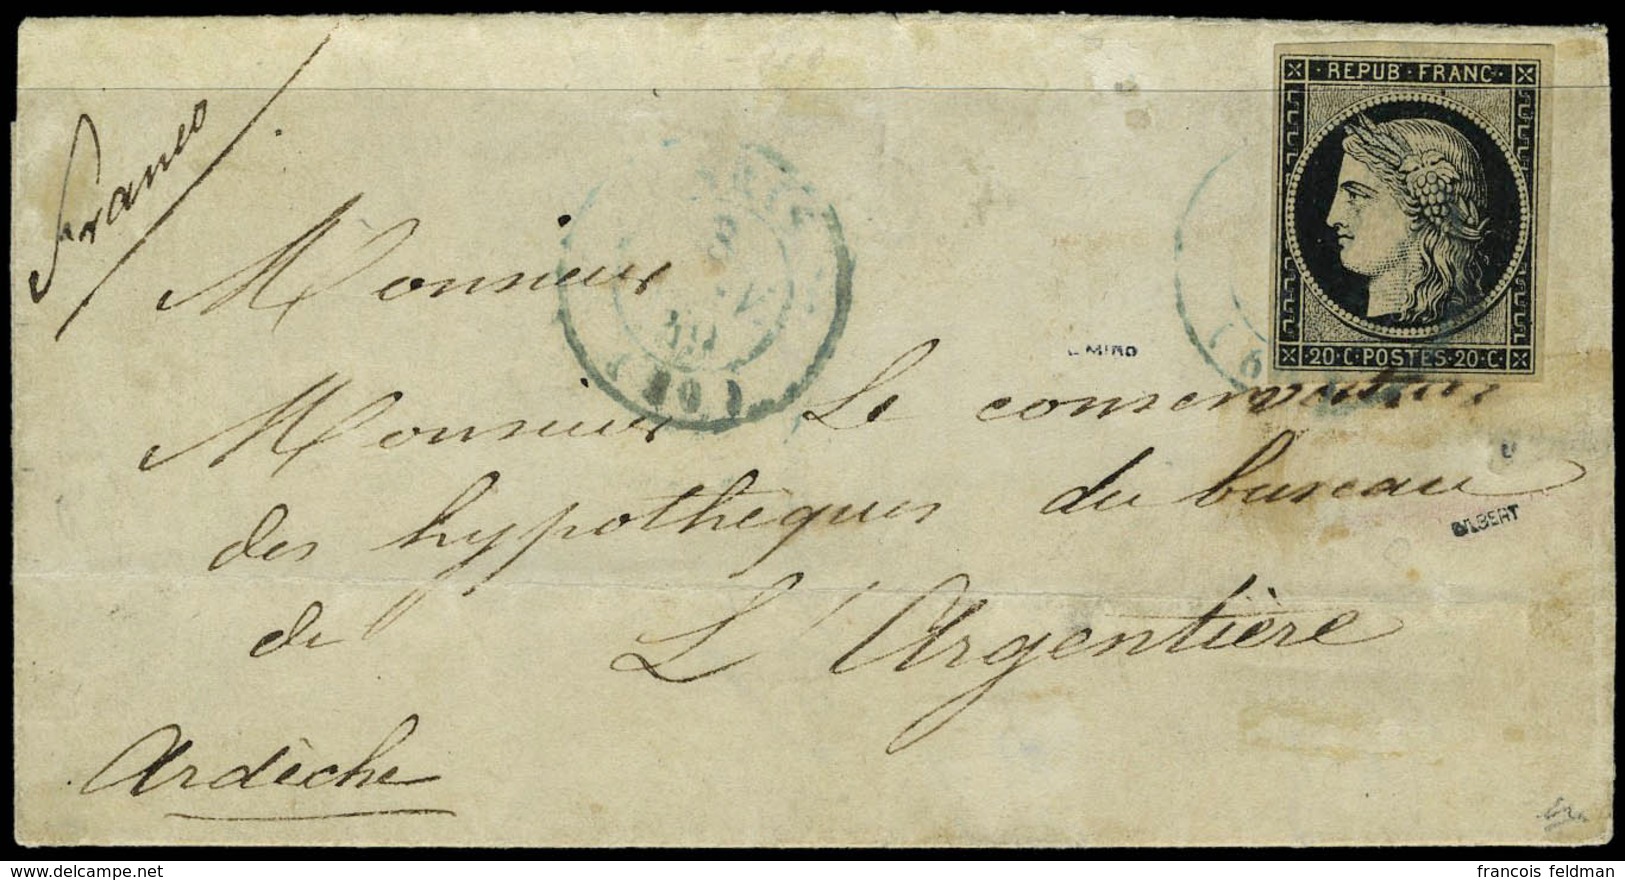 Franco
REPUB · FRANC ·
20 · C · POSTES · 20 · C ·
Monsieur
Monsieur Le conservateur
des hypothèques du bureau
de L'Argentière
Ardèche
MIRO
GILBERT
francois feldman